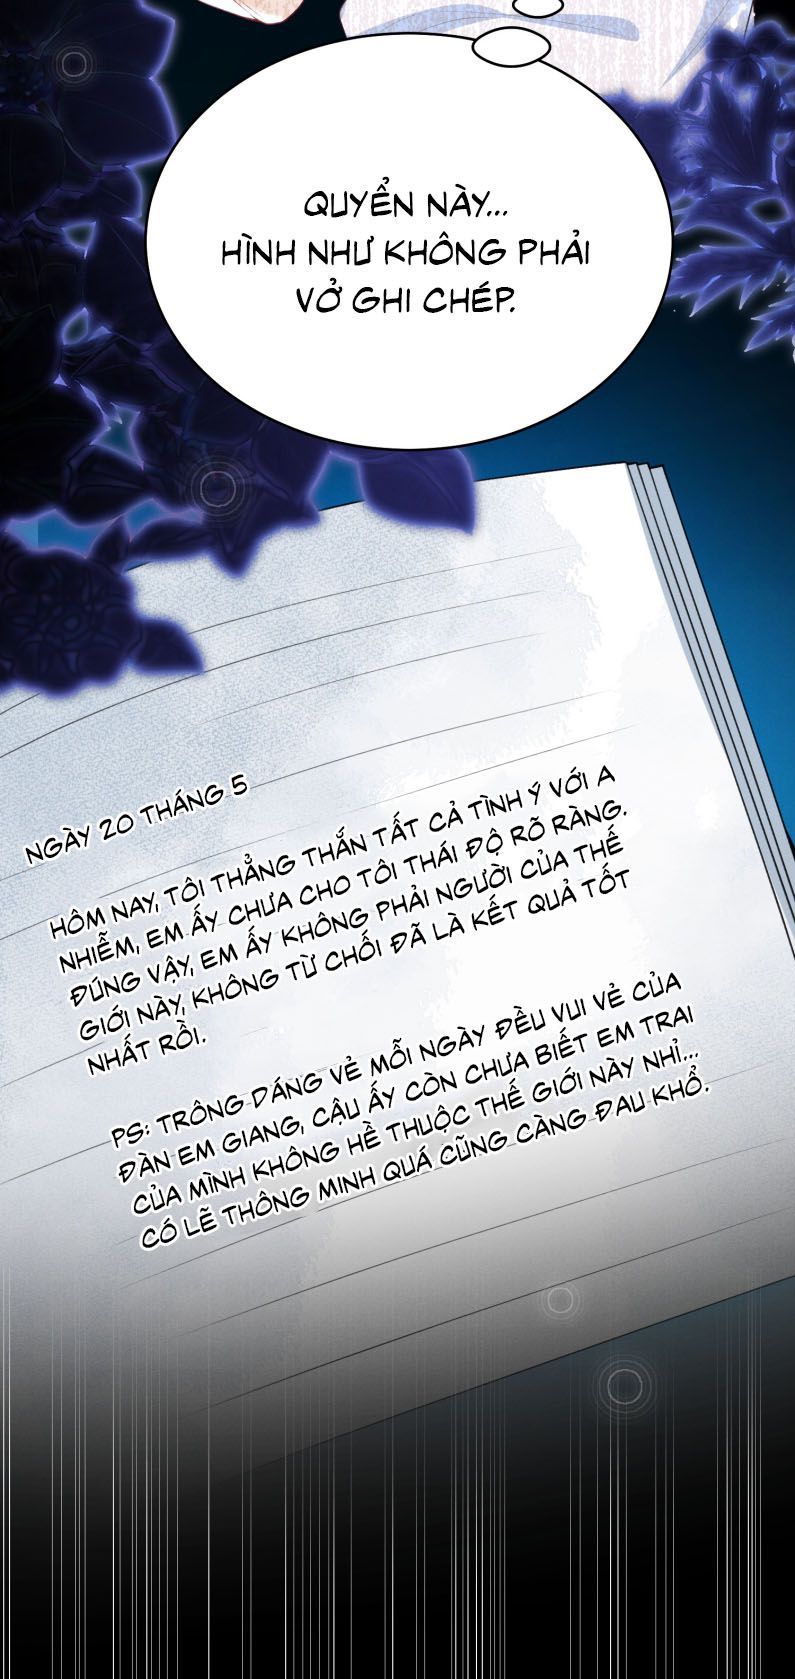 QUYỂN NÀY...
HÌNH NHƯ KHÔNG PHẢI
VỞ GHI CHÉP.
NGÀY 20 THÁNG 5
HÔM NAY, TÔI THẲNG THẮN TẤT CẢ TÌNH Ý VỚI A
NHIỄM, EM ẤY CHƯA CHO TÔI THÁI ĐỘ RÕ RÀNG.
ĐÚNG VẬY, EM ẤY KHÔNG PHẢI NGƯỜI CỦA THẾ
GIỚI NÀY, KHÔNG TỪ CHỐI ĐÃ LÀ KẾT QUẢ TỐT
NHẤT RỒI.
PS: TRÔNG DÁNG VẺ MỖI NGÀY ĐỀU VUI VẺ CỦA
ĐÀN EM GIANG, CẬU ẤY CÒN CHƯA BIẾT EM TRAI
CỦA MÌNH KHÔNG HỀ THUỘC THẾ GIỚI NÀY NHỈ...
CÓ LẼ THÔNG MINH QUÁ CŨNG CÀNG ĐAU KHỔ.